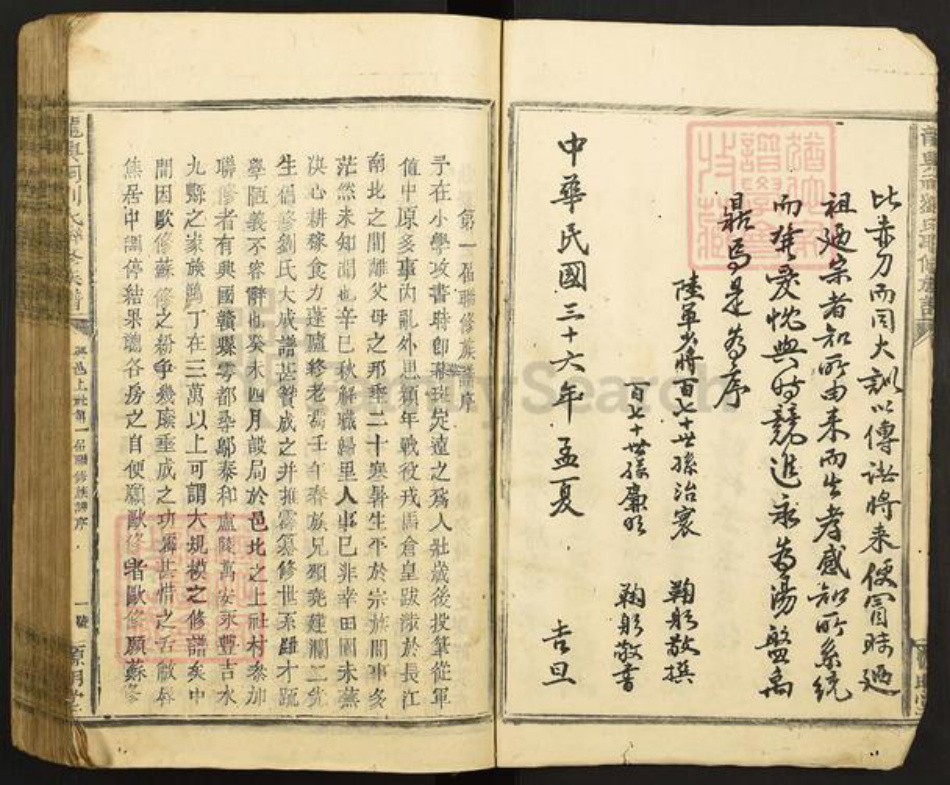 比赤刀而同大訓以傳諸將来便冒時迺
祖迺宗者知所由来而生孝感知所系統
而發愛忱與時競進永為湯盤禹
鼎焉是為序
陸軍少將百七十世孫治寰 鞠躬敬撰
百七十世孫廉 鞠躬敬書
中華民國三十六年孟夏 吉旦
第一屆聯修族譜序
予在小學攻書時即慕班定遠之為人壯歲後投筆從軍
值中原多事內亂外患頻年戰役戎馬倉皇跋涉於長江
南北之間離父母之邦垂二十寒暑生平於宗族間事多
茫然未知聞也辛巳秋解職歸里人事已非幸田園未蕪
決心耕稼食力蓬廬終老焉壬午春族兄顯堯建瀾二先
生倡修劉氏大成譜甚贊成之并推霱纂修世系雖才疏
學陋義不容辭也癸未四月設局於邑北之上社村黍加
聯修者有興國贛縣雩都尋鄔泰和盧陵萬安永豐吉水
九縣之家族鴈丁在三萬以上可謂大規模之修譜矣中
間因歐修蘇修之紛爭幾壞垂成之功霱甚惜之舌敝唇
焦居中調停結果聽各房之自便願歐修者歐修願蘇修
興邑上社第一屆聯修族譜序
一號